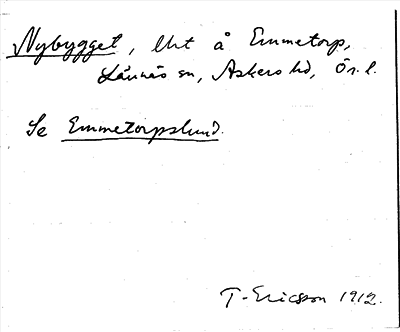 Nybygget, lht å Emmetorp,
Lännäs sn, Askers hd, Ör. l.
Se Emmetorpslund.
T. Ericsson 1912.